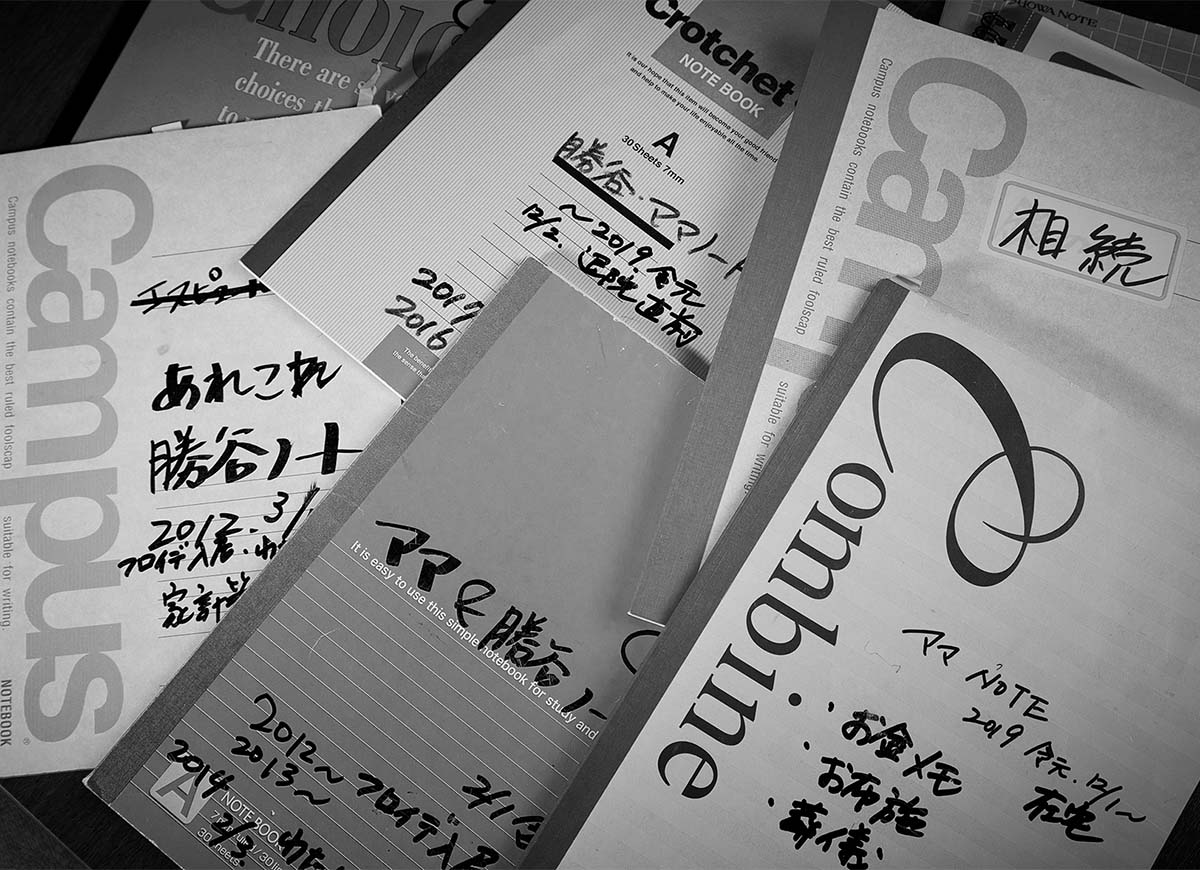 There are
choices th
to
Crotchet
NOTE BOOK
It is our hope that this item will become your good friend
and help to make your life enjoyable all the time.
A
30Sheets 7mm
勝谷・ママノート
〜2019令元
12/2. 退院直前
2017
2016
The benefi
the sense tha
SHOWA NOTE
Campus notebooks contain the best ruled foolscap
suitable for writing.
相続
Campus
Campus notebooks contain the best ruled foolscap
suitable for writing.
NOTEBOOK
あれこれ
勝谷ノート
2012.3/
フロイデ入居・
家計簿
ママと勝谷ノー
It is easy to use this simple notebook for study and
2012〜
2013〜
2014
フロイデ入居
A
NOTEBOO
30 sheets
Combine
ママ NOTE
2019 令元.12/1〜
在宅
・お金メモ
お布施
・葬儀